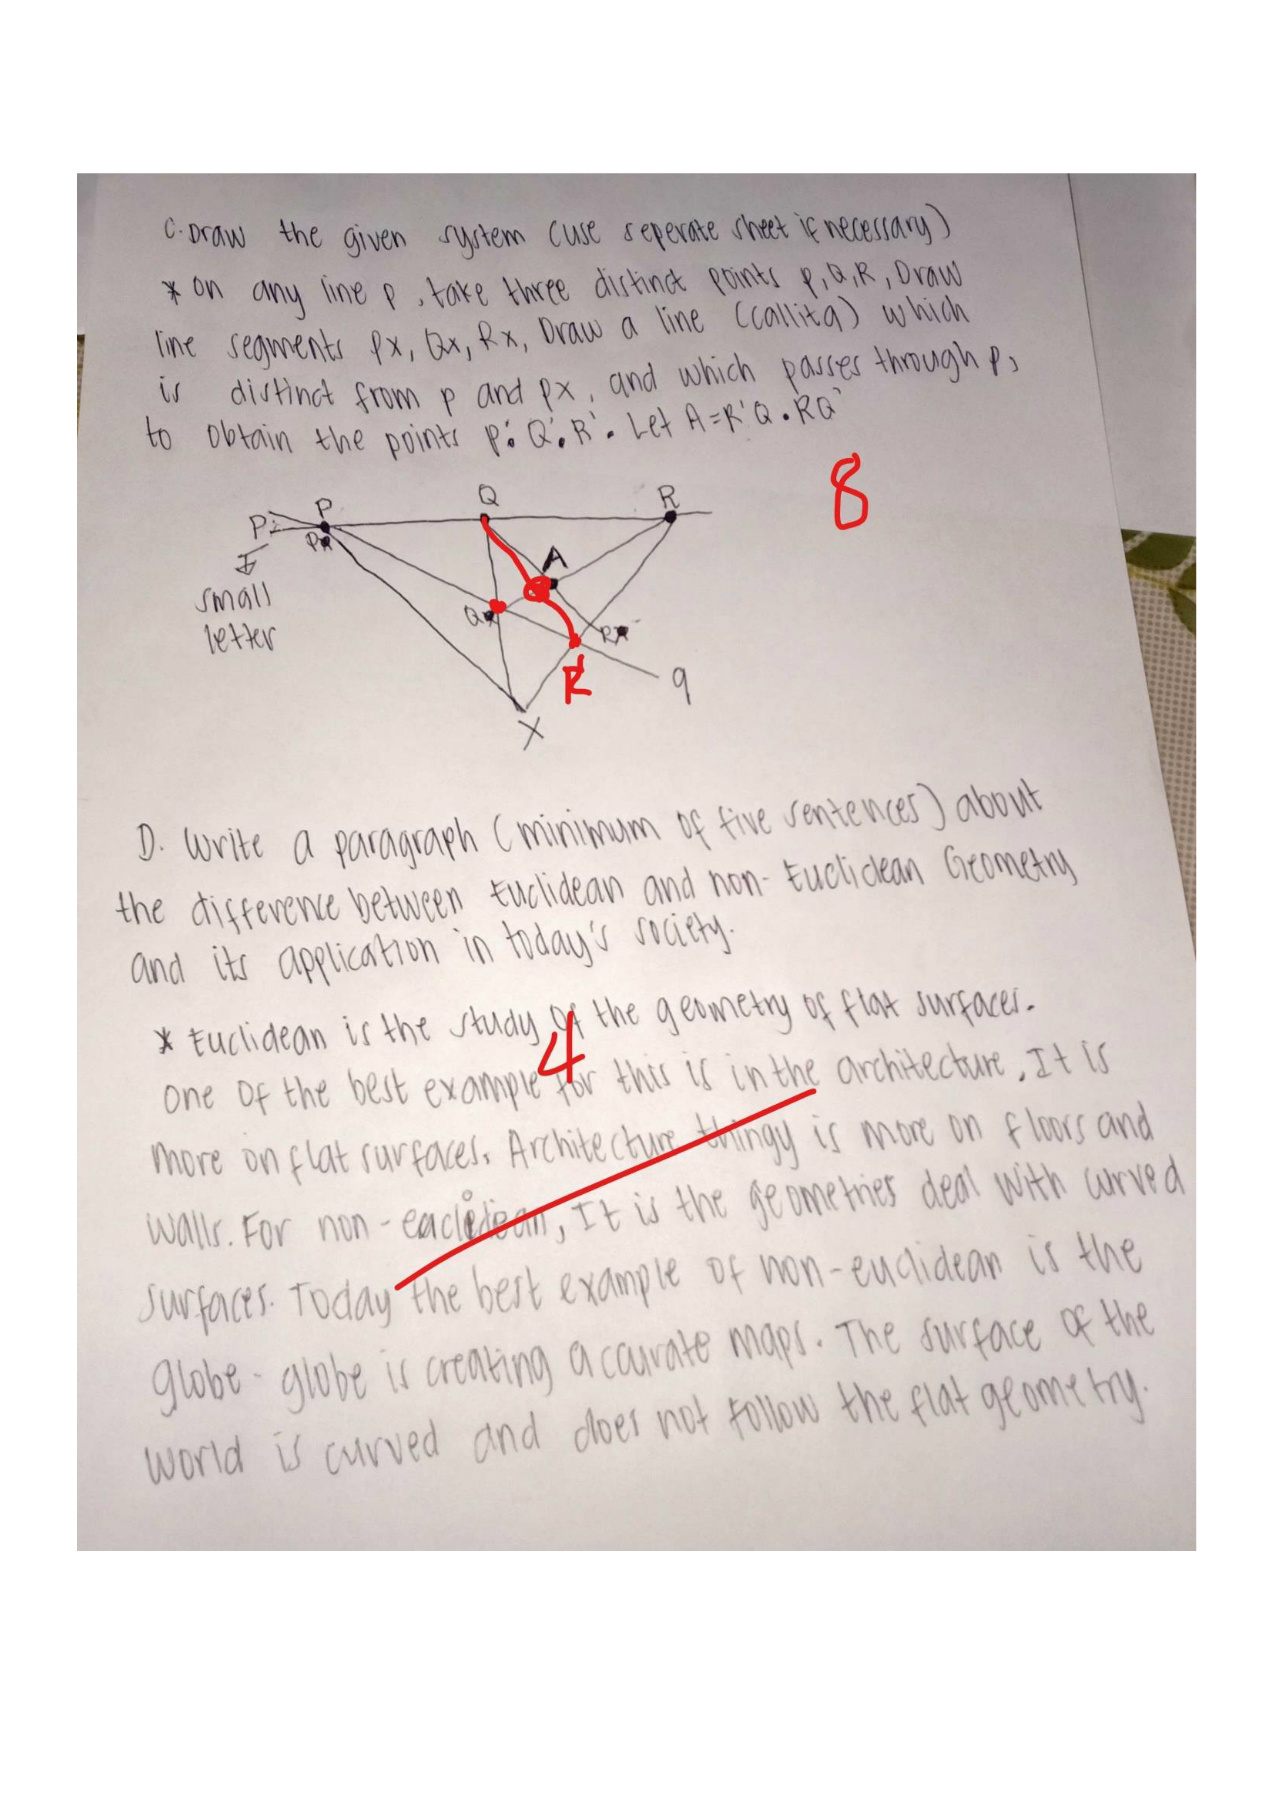 C. Draw the given system (use seperate sheet if necessary)
* on any line p, take three distinct points P, Q, R, Draw
line segments Px, Qx, Rx, Draw a line (callitq) which
is distinct from p and px, and which passes through p,
to obtain the points P', Q', R'. Let A=R'Q . RQ'
8
Q
R
P
P:
Px
A
small
letter
Qx
Rx
R'
q
X
D. Write a paragraph (minimum of five sentences) about
the difference between Euclidean and non-Euclidean Geometry
and its application in today's society.
* Euclidean is the study of the geometry of flat surfaces.
4
one of the best example for this is in the architecture, It is
more on flat surfaces. Architecture thingy is more on floors and
walls. For non-eaclidean, It is the geometries deal with curved
surfaces. Today the best example of non-euclidean is the
globe - globe is creating accurate maps. The surface of the
world is curved and does not follow the flat geometry.